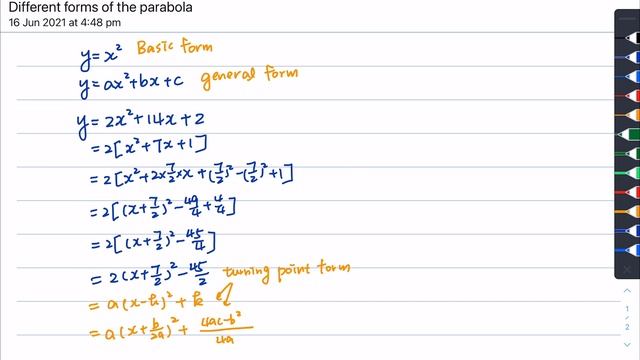 Different forms of the parabola
16 Jun 2021 at 4:48 pm
y=x² Basic form
y=ax²+bx+c general form
y=2x²+14x+2
=2[x²+7x+1]
=2[x²+2×7/2×x+(7/2)²-(7/2)²+1]
=2[(x+7/2)²-49/4+4/4]
=2[(x+7/2)²-45/4]
=2(x+7/2)²-45/2 turning point form
=a(x-h)²+k
=a(x+b/2a)²+(4ac-b²)/4a
1
2